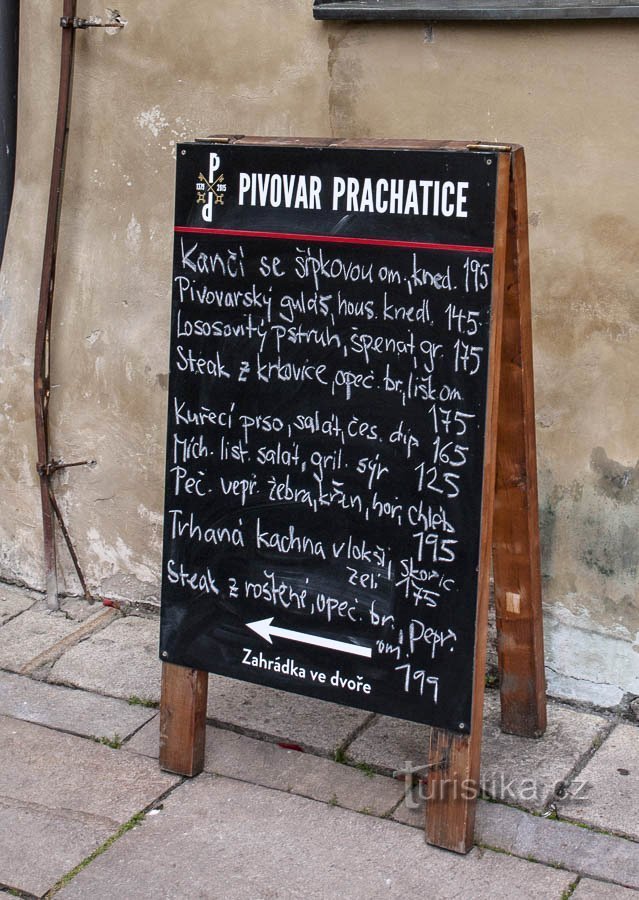 P
1379 2015
P
PIVOVAR PRACHATICE
Kančí se šípkovou om., kned. 195
Pivovarský guláš, hous. knedl. 145.
Lososovitý pstruh, špenat, gr. 175
Steak z krkovice, opeč. br., lišk om.
175
Kuřecí prso, salát, čes. dip 165
Mích. list. salát, gril. sýr 125
Peč. vepř. žebra, křen, hoř, chléb
195
Trhaná kachna v lokši,
zelí, skořic
*75
Steak z roštěné, opeč. br., Pepř.
om. 199
Zahrádka ve dvoře
Turistika.cz